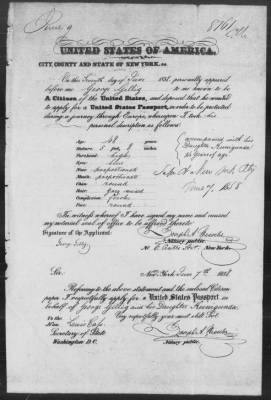 June 9
8761
UNITED STATES OF AMERICA.
CITY, COUNTY AND STATE OF NEW YORK, ss.
On this Seventh day of June 1858, personally appeared
before me George Gillig to me known to be
A Citizen of the United States, and deposed that he wishes
to apply for a United States Passport, in order to be protected
during a journey through Europe, whereupon I took his
personal description as follows:
Age: 48 years
Stature: 5 feet, 8 inches
Forehead: high
Eyes: blue
Nose: proportioned
Mouth: proportioned
Chin: round
Hair: grey mixed
Complexion: fresh
Face: round
accompanied with his
Daughter Kunigunda
years of age
New York City
June 7, 1858
In witness whereof I have signed my name and caused
my notarial seal of office to be affixed hereto
Signature of the Applicant:
Joseph A.
Notary public.
New-York.
Sir.
New-York June 7th 1858
Referring to the above statement and the enclosed Citizen
paper I respectfully apply for a United States Passport in
behalf of George Gillig and his Daughter Kunigunda
Very respectfully your obt. Svt.
To the Honl. Lewis Cass
Secretary of State
Washington D.C.
Joseph A.
Notary public.